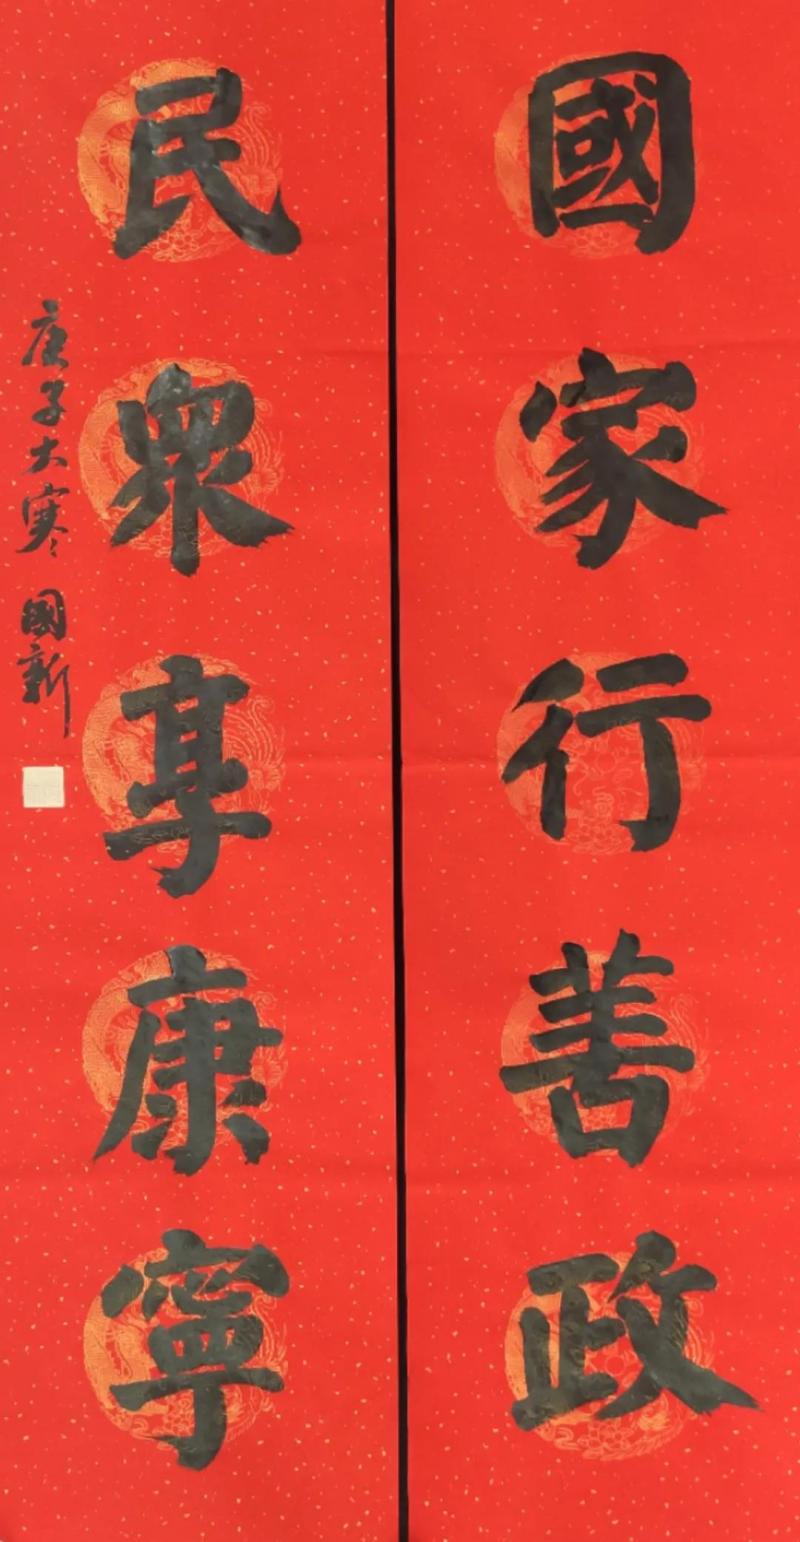 國家行善政
民衆享康寧
庚子大寒 國新